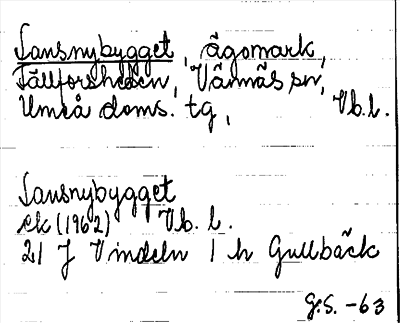 Lansnybygget, ägomark,
Tällforsheden, Vännäs sn,
Umeå doms. tg, Vb. l.
Lansnybygget
ek (1962) Vb. l.
21 J Vindeln 1 h Gullbäck
G.S. -63